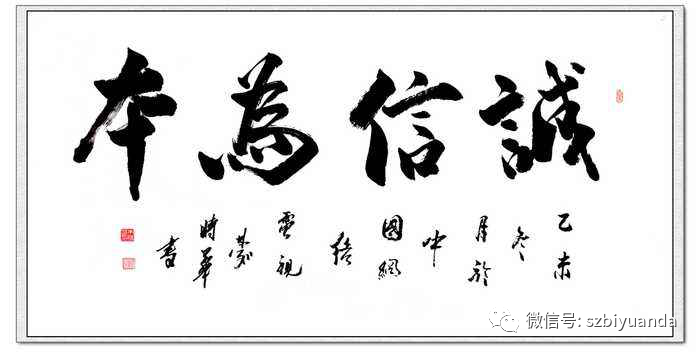 誠信為本
乙未
冬
月於
中
國網
絡
電視
臺
時華
書
微信号: szbiyuanda